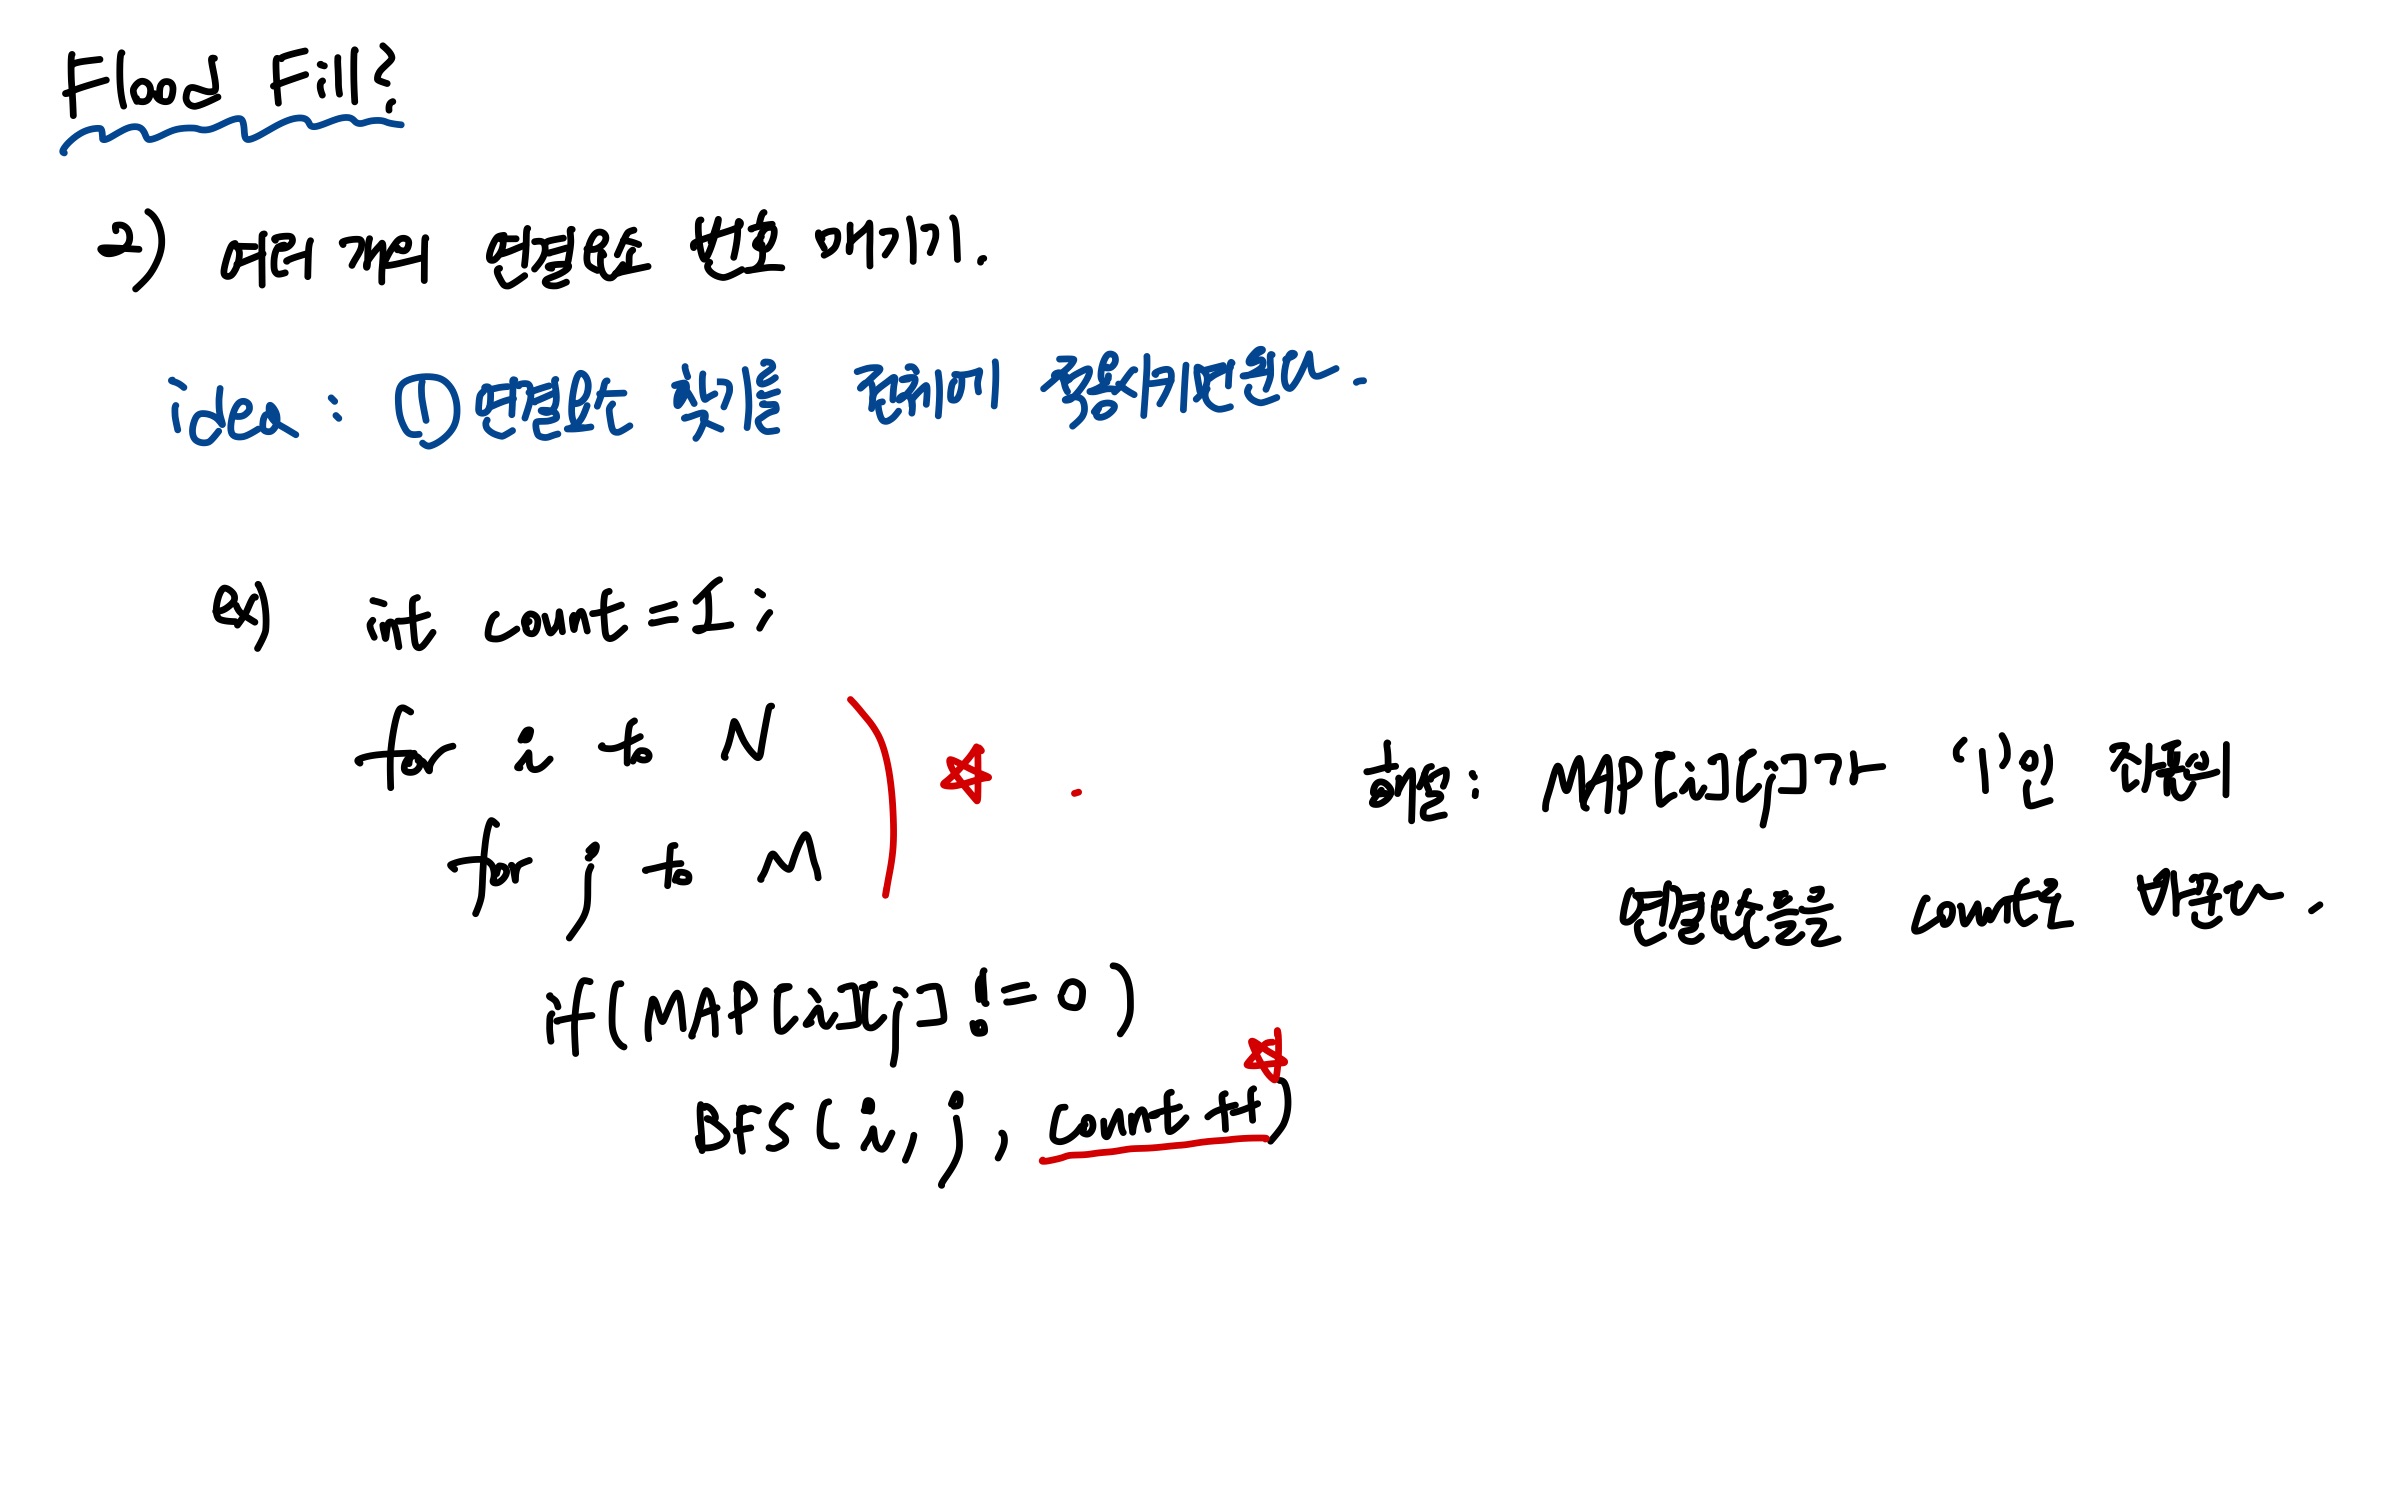 Flood Fill?
2) 여러 개의 연결된 번호 매기기.
idea : ① 연결된 부분을 차례대로 증가시킨다.
ex) int count = 1;
for i to N
for j to M
if(MAP[i][j] != 0)
DFS(i, j, count ++)
해석: MAP[i][j]가 '1'인 지점이
연결된 곳을 count로 바꾼다.